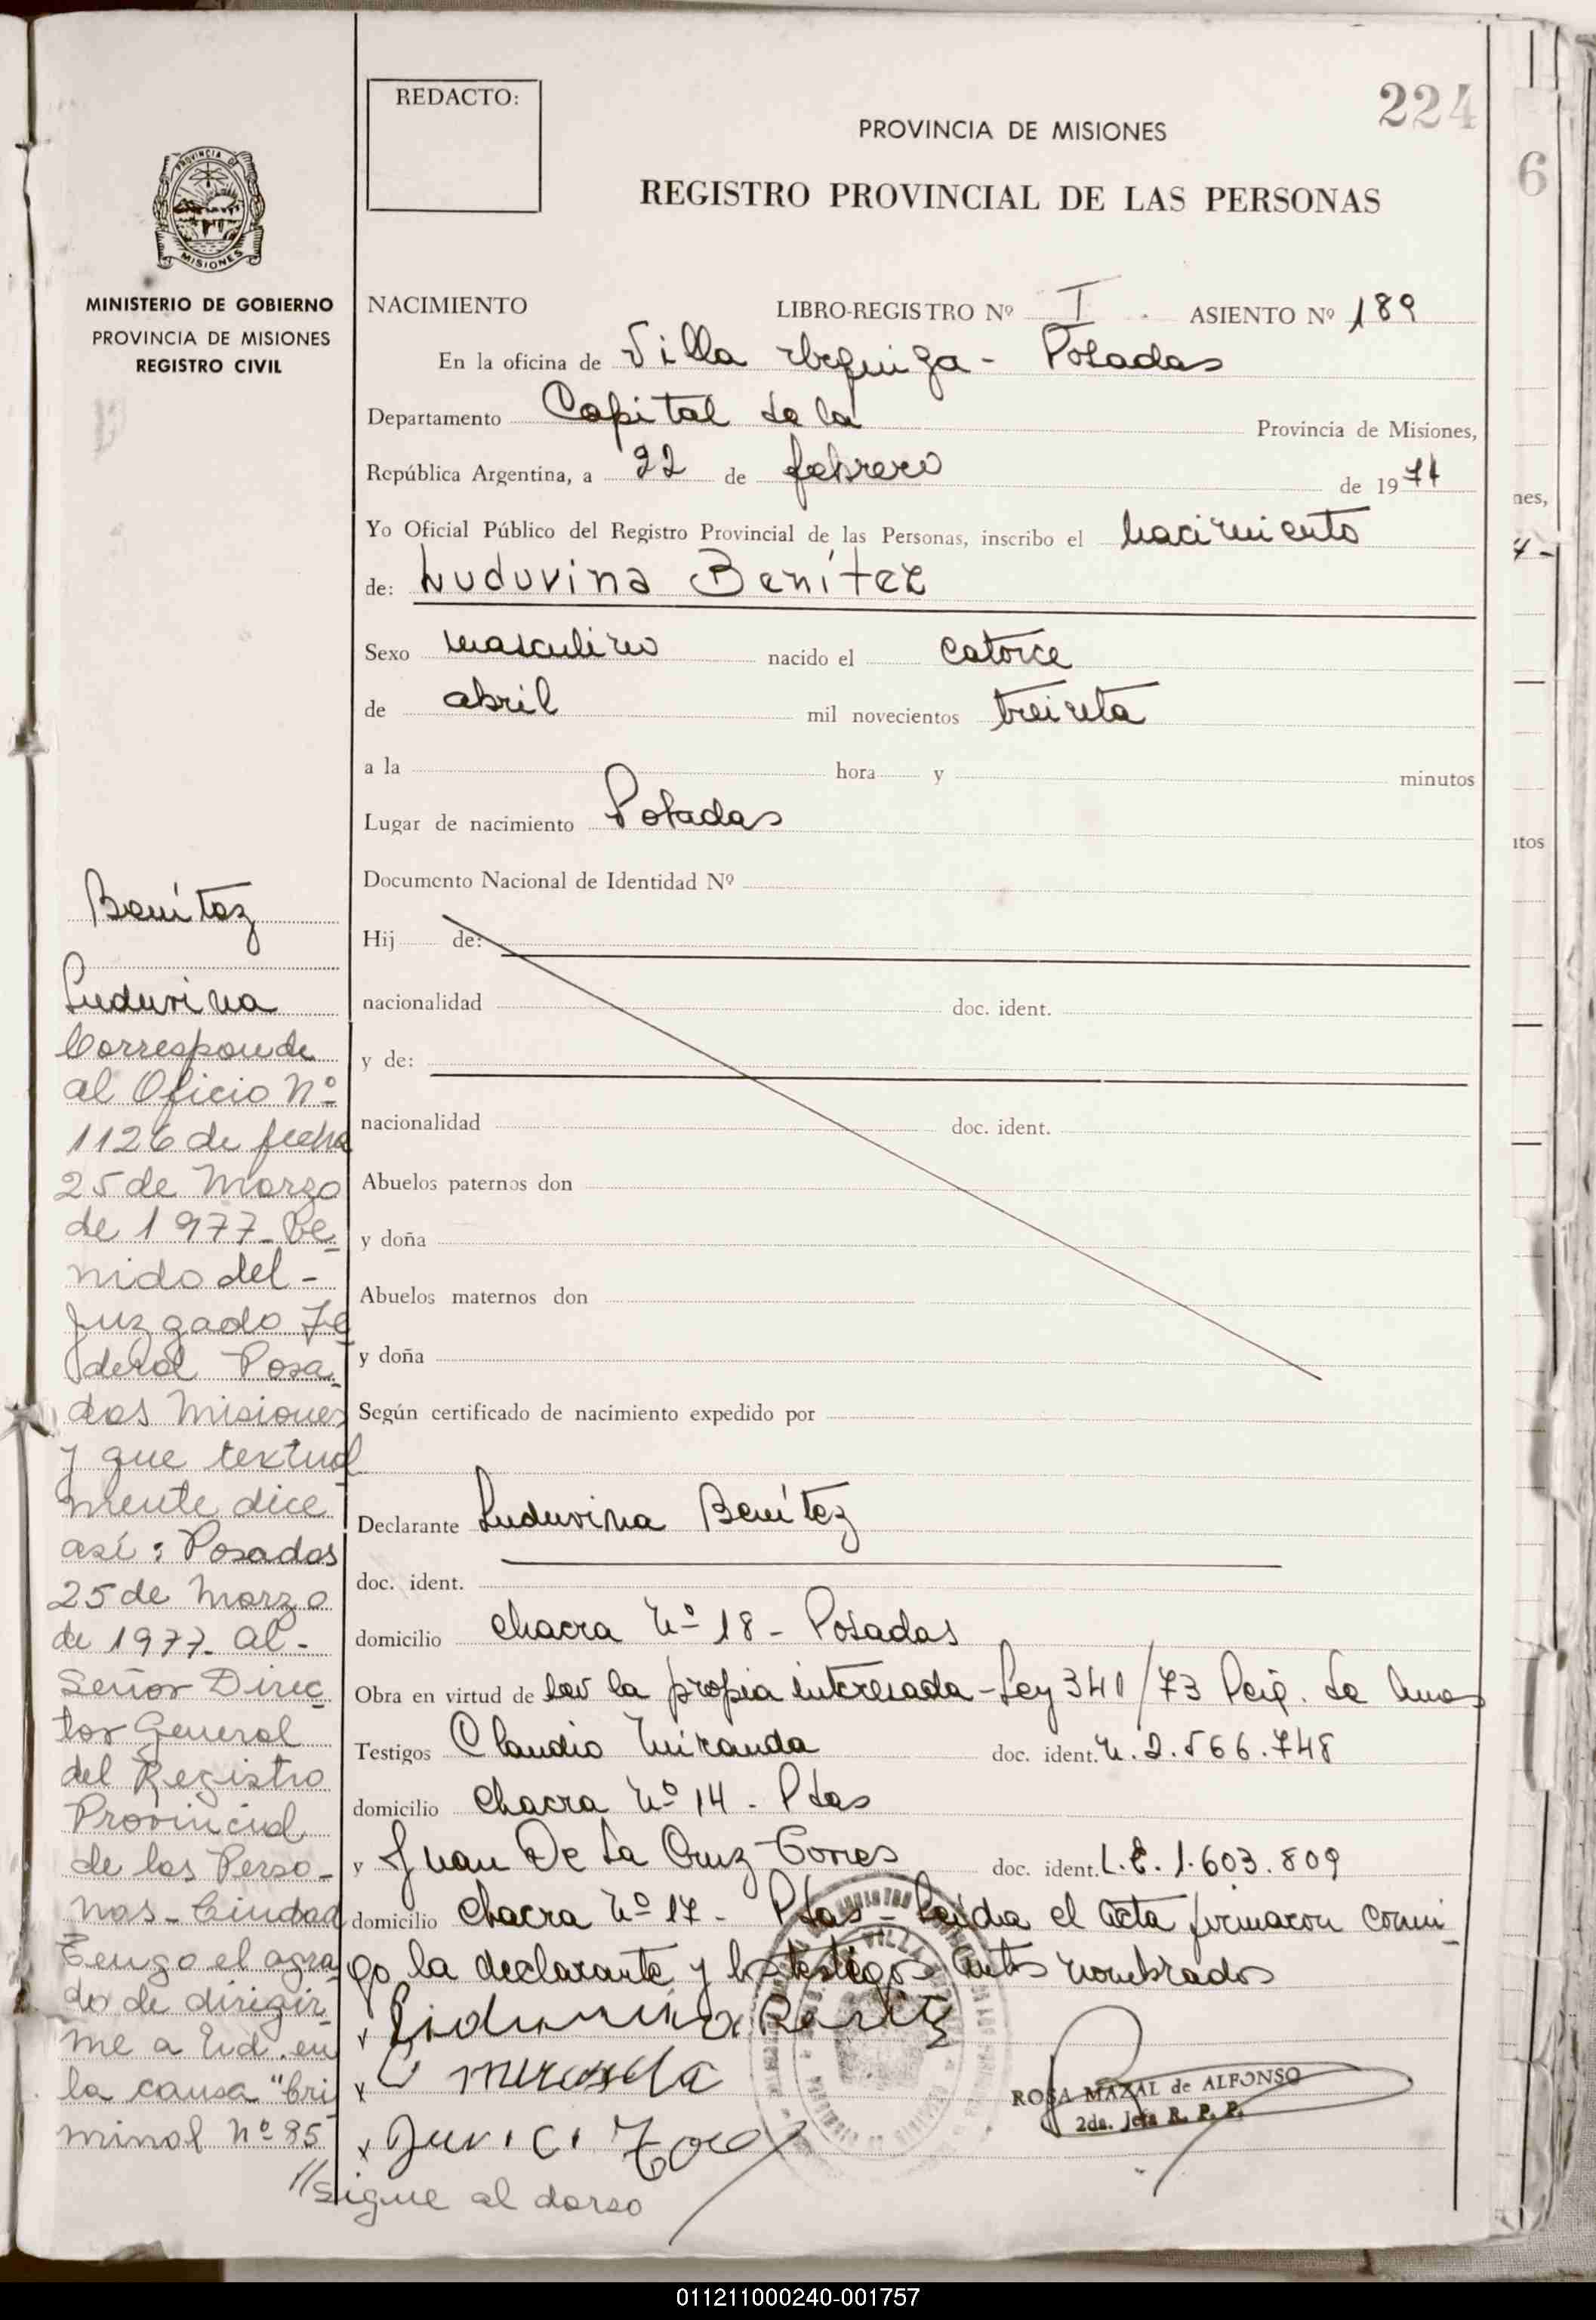 REDACTO:
224
PROVINCIA DE MISIONES
REGISTRO PROVINCIAL DE LAS PERSONAS
6
PROVINCIA DE
MISIONES
MINISTERIO DE GOBIERNO
PROVINCIA DE MISIONES
REGISTRO CIVIL
NACIMIENTO LIBRO-REGISTRO Nº I ASIENTO Nº 189
En la oficina de Villa - Posadas
Departamento Capital de la Provincia de Misiones,
República Argentina, a 22 de febrero de 1974
Yo Oficial Público del Registro Provincial de las Personas, inscribo el nacimiento
de: Luduvina Benítez
Sexo masculino nacido el catorce
de abril mil novecientos treinta
a la hora y minutos
Lugar de nacimiento Posadas
Documento Nacional de Identidad Nº
Hij de:
nacionalidad doc. ident.
y de:
nacionalidad doc. ident.
Abuelos paternos don
y doña
Abuelos maternos don
y doña
Según certificado de nacimiento expedido por
Declarante Luduvina Benítez
doc. ident.
domicilio chacra Nº 18 - Posadas
Obra en virtud de ser la propia interesada - Ley 340/73
Testigos Claudio Miranda doc. ident. 2.566.748
domicilio chacra Nº 14 - Pdas
y Juan De La Cruz Torres doc. ident. L.E. 1.603.809
domicilio chacra Nº 17 - Pdas - Leída el Acta firmaron conmi
go la declarante y los testigos antes nombrados
ROSA MAZAL de ALFONSO
2da. Jefa R. P. P.
Benítez
Luduvina
Corresponde
al Oficio Nº
1126 de fecha
25 de Marzo
de 1977 - Ve-
nido del -
Juzgado Fe
deral Posa-
das Misiones
y que textual
mente dice
así: Posadas
25 de Marzo
de 1977. Al -
Señor Direc
tor General
del Registro
Provincial
de las Perso-
nas - Ciudad
Tengo el agra
do de dirigir
me a Ud. en
la causa "Cri
minal Nº 85
//sigue al dorso
nes,
utos
011211000240-001757